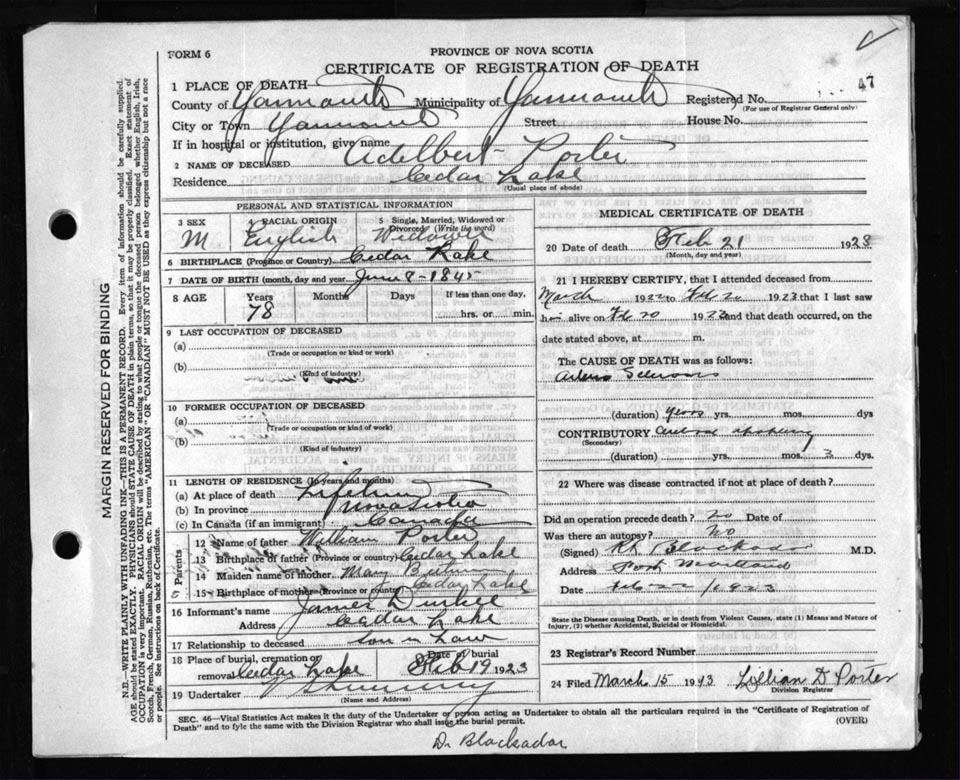 FORM 6
PROVINCE OF NOVA SCOTIA
CERTIFICATE OF REGISTRATION OF DEATH
47
1 PLACE OF DEATH
County of Yarmouth Municipality of Yarmouth Registered No.
(For use of Registrar General only)
City or Town Yarmouth Street House No.
If in hospital or institution, give name
2 NAME OF DECEASED Adelbert Porter
Residence Cedar Lake
(Usual place of abode)
PERSONAL AND STATISTICAL INFORMATION
3 SEX M
4 RACIAL ORIGIN English
5 Single, Married, Widowed or Divorced (Write the word) Widower
6 BIRTHPLACE (Province or Country) Cedar Lake
7 DATE OF BIRTH (month, day and year) June 8 - 1845
8 AGE Years Months Days If less than one day,
78 hrs. or min.
9 LAST OCCUPATION OF DECEASED
(a)
(Trade or occupation or kind of work)
(b)
(Kind of industry)
10 FORMER OCCUPATION OF DECEASED
(a)
(Trade or occupation or kind of work)
(b)
(Kind of industry)
11 LENGTH OF RESIDENCE (In years and months)
(a) At place of death Lifetime
(b) In province Nova Scotia
(c) In Canada (if an immigrant) Canada
Parents
12 Name of father William Porter
13 Birthplace of father (Province or country) Cedar Lake
14 Maiden name of mother Mary
15 Birthplace of mother (Province or country) Cedar Lake
16 Informant's name James Durkee
Address Cedar Lake
17 Relationship to deceased son in Law
18 Place of burial, cremation or removal Cedar Lake Date of burial Feb 19 1923
19 Undertaker
(Name and Address)
MEDICAL CERTIFICATE OF DEATH
20 Date of death Feb 21 1923
(Month, day and year)
21 I HEREBY CERTIFY, that I attended deceased from
March 1922 to Feb 20 1923 that I last saw
him alive on Feb 20 1923 and that death occurred, on
date stated above, at m.
The CAUSE OF DEATH was as follows:
(duration) years yrs. mos. dys
CONTRIBUTORY
(Secondary)
(duration) yrs. mos. 3 dys.
22 Where was disease contracted if not at place of death?
Did an operation precede death? no Date of
Was there an autopsy? no
(Signed) Blackadar M.D.
Address Port Maitland
Date 1923
State the Disease causing Death, or in death from Violent Causes, state (1) Means and Nature of Injury, (2) whether Accidental, Suicidal or Homicidal.
23 Registrar's Record Number
24 Filed March 15 Lillian D Porter
Division Registrar
SEC. 46—Vital Statistics Act makes it the duty of the Undertaker or person acting as Undertaker to obtain all the particulars required in the "Certificate of Registration of
Death" and to fyle the same with the Division Registrar who shall issue the burial permit. (OVER)
Dr Blackadar
MARGIN RESERVED FOR BINDING
N.B.—WRITE PLAINLY WITH UNFADING INK—THIS IS A PERMANENT RECORD. Every item of information should be carefully supplied.
AGE should be stated EXACTLY. PHYSICIANS should STATE CAUSE OF DEATH in plain terms, so that it may be properly classified. Exact statement of
OCCUPATION is very important. RACIAL ORIGIN will be described by stating to what people or tongue the deceased person belonged whether English, Irish,
Scotch, French, German, Russian, Ruthenian, etc. The terms "AMERICAN" OR "CANADIAN" MUST NOT BE USED as they express citizenship but not a race
or people. See instructions on back of Certificate.